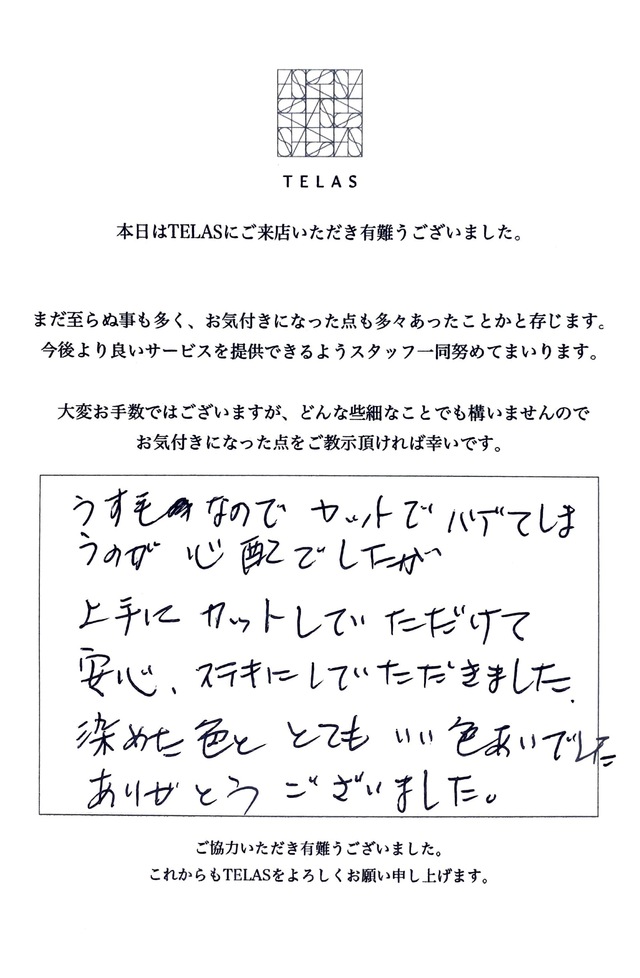 TELAS
本日はTELASにご来店いただき有難うございました。
まだ至らぬ事も多く、お気付きになった点も多々あったことかと存じます。
今後より良いサービスを提供できるようスタッフ一同努めてまいります。
大変お手数ではございますが、どんな些細なことでも構いませんので
お気付きになった点をご教示頂ければ幸いです。
うす毛なので カットで ハゲてしま
うのが 心配でしたが
上手に カットしていただけて
安心、ステキにしていただきました。
染めた色と とても いい色あいでした
ありがとう ございました。
ご協力いただき有難うございました。
これからもTELASをよろしくお願い申し上げます。